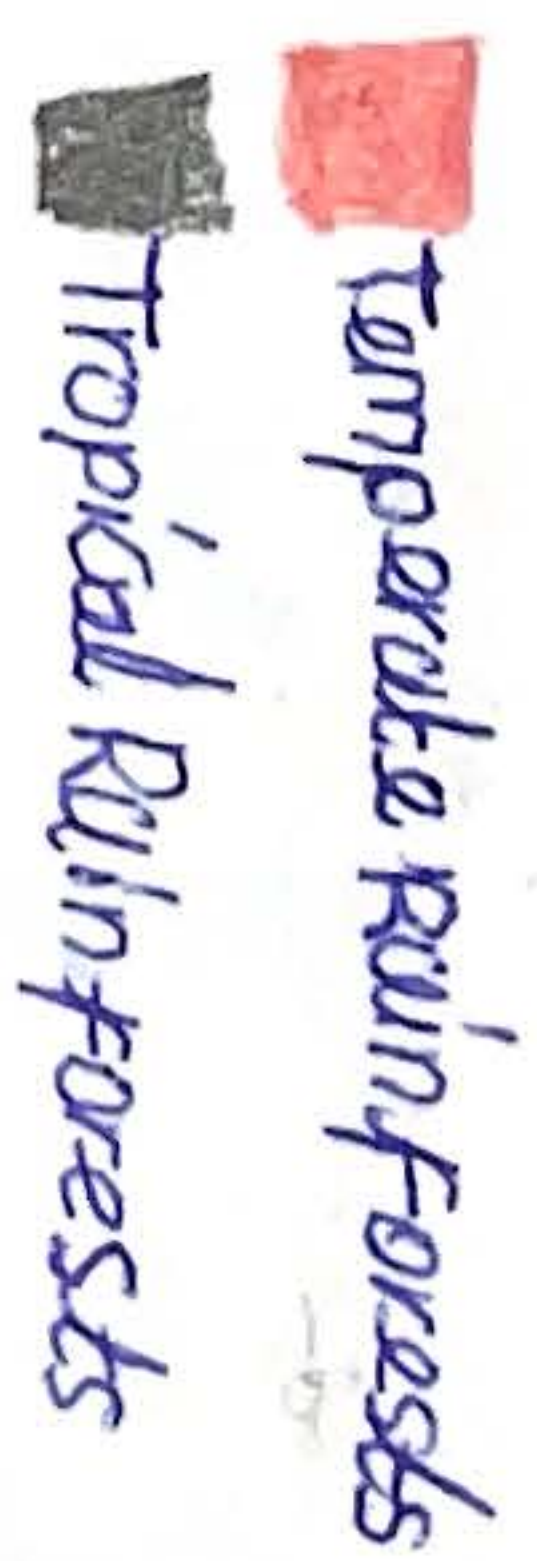 Temperate Rainforests
Tropical Rainforests